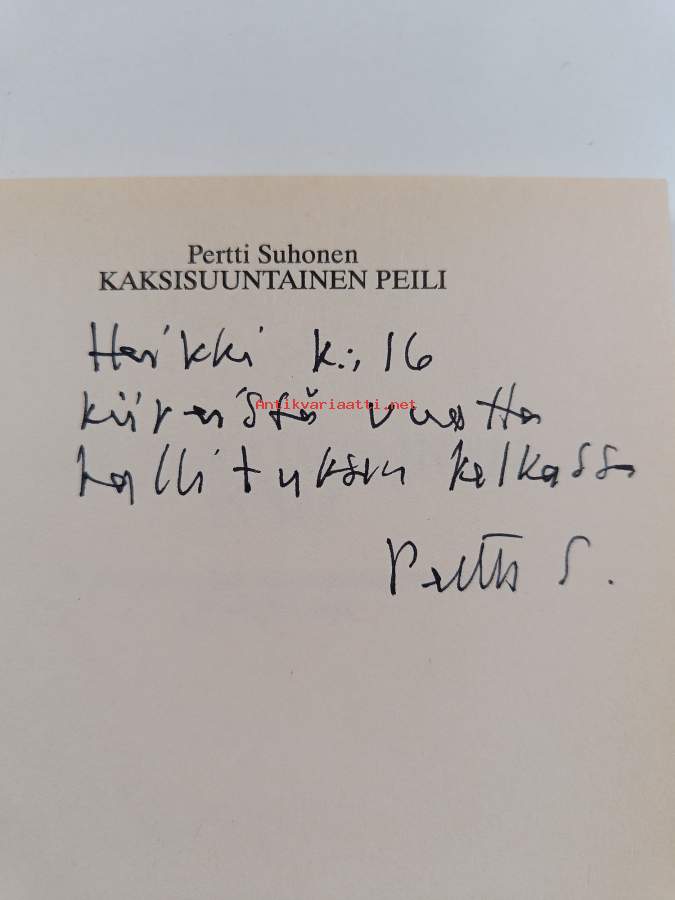 Pertti Suhonen
KAKSISUUNTAINEN PEILI
Heikki K:, 16
kiireistä vuotta
Antikvariaatti.net
hallituksen kelkassa
Pertti S.